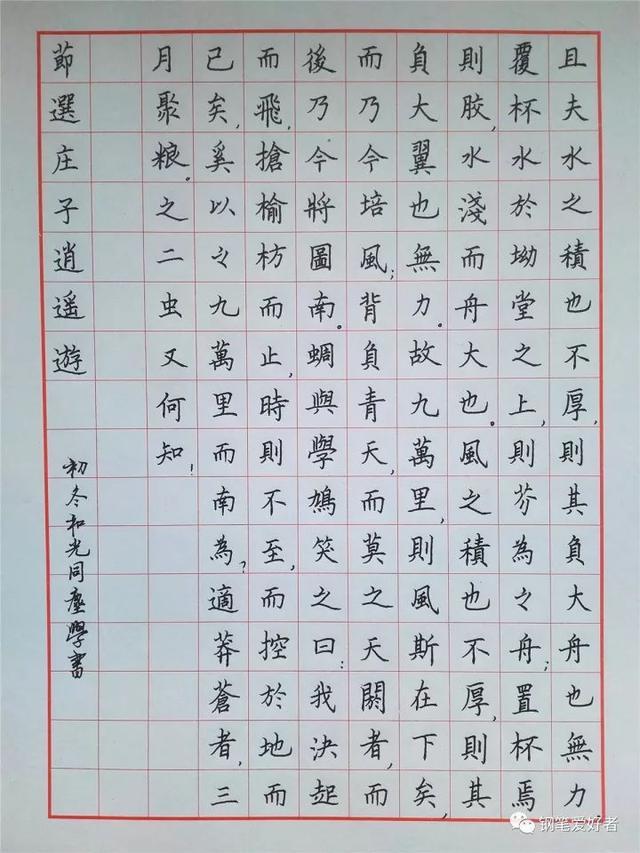 且夫水之積也不厚,則其負大舟也無力
覆杯水於坳堂之上,則芥為之舟;置杯焉
則胶,水淺而舟大也。風之積也不厚,則其
負大翼也無力。故九萬里,則風斯在下矣,
而乃今培風;背負青天,而莫之夭閼者,而
後乃今將圖南。蜩與學鳩笑之曰:我決起
而飛,搶榆枋而止,時則不至,而控於地而
已矣,奚以之九萬里而南為?適莽蒼者,三
月聚粮。之二虫又何知!
節選庄子逍遥遊
初冬和光同塵學書
钢笔爱好者